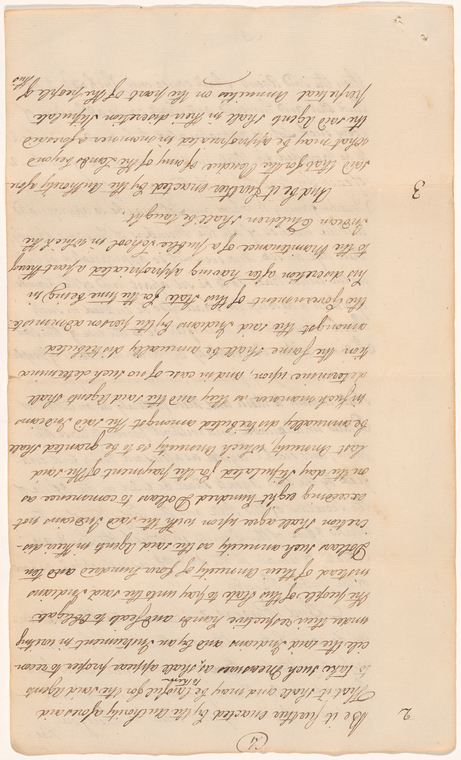 (4)
2 Be it further enacted by the Authority aforesaid
That it shall and may be lawful to & for the said Agents
to take such Measures as shall appear proper to recon-
cile the said Indians and by an Instrument in writing
under their respective hands and seals to obligate
the people of this State to pay unto the said Indians
instead of their Annuity of Four Hundred and ten
Dollars such annuity as the said Agents in their dis-
cretion shall agree upon with the said Indians not
exceeding eight hundred Dollars to commence as
on the day stipulated for the payment of the said
last Annuity, which Annuity so to be granted shall
be annually distributed amongst the said Indians
in such manner as they and the said Agents shall
determine upon, and in case of no such determina-
tion the same shall be annually distributed
amongst the said Indians by the person administe-
the Government of this State for the time being in
his discretion after having appropriated a part thereof
to the Maintenance of a public School in which the
Indian Children shall be taught.
3 And be it further enacted by the Authority afore
said that for the Residue of any of the Lands beyond
what may be appropriated in manner aforesaid
the said Agents shall in their discretion stipulate
perpetual Annuities on the part of the people of
this